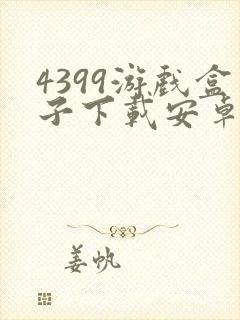 4399游戏盒
子下载安卓
姜帆